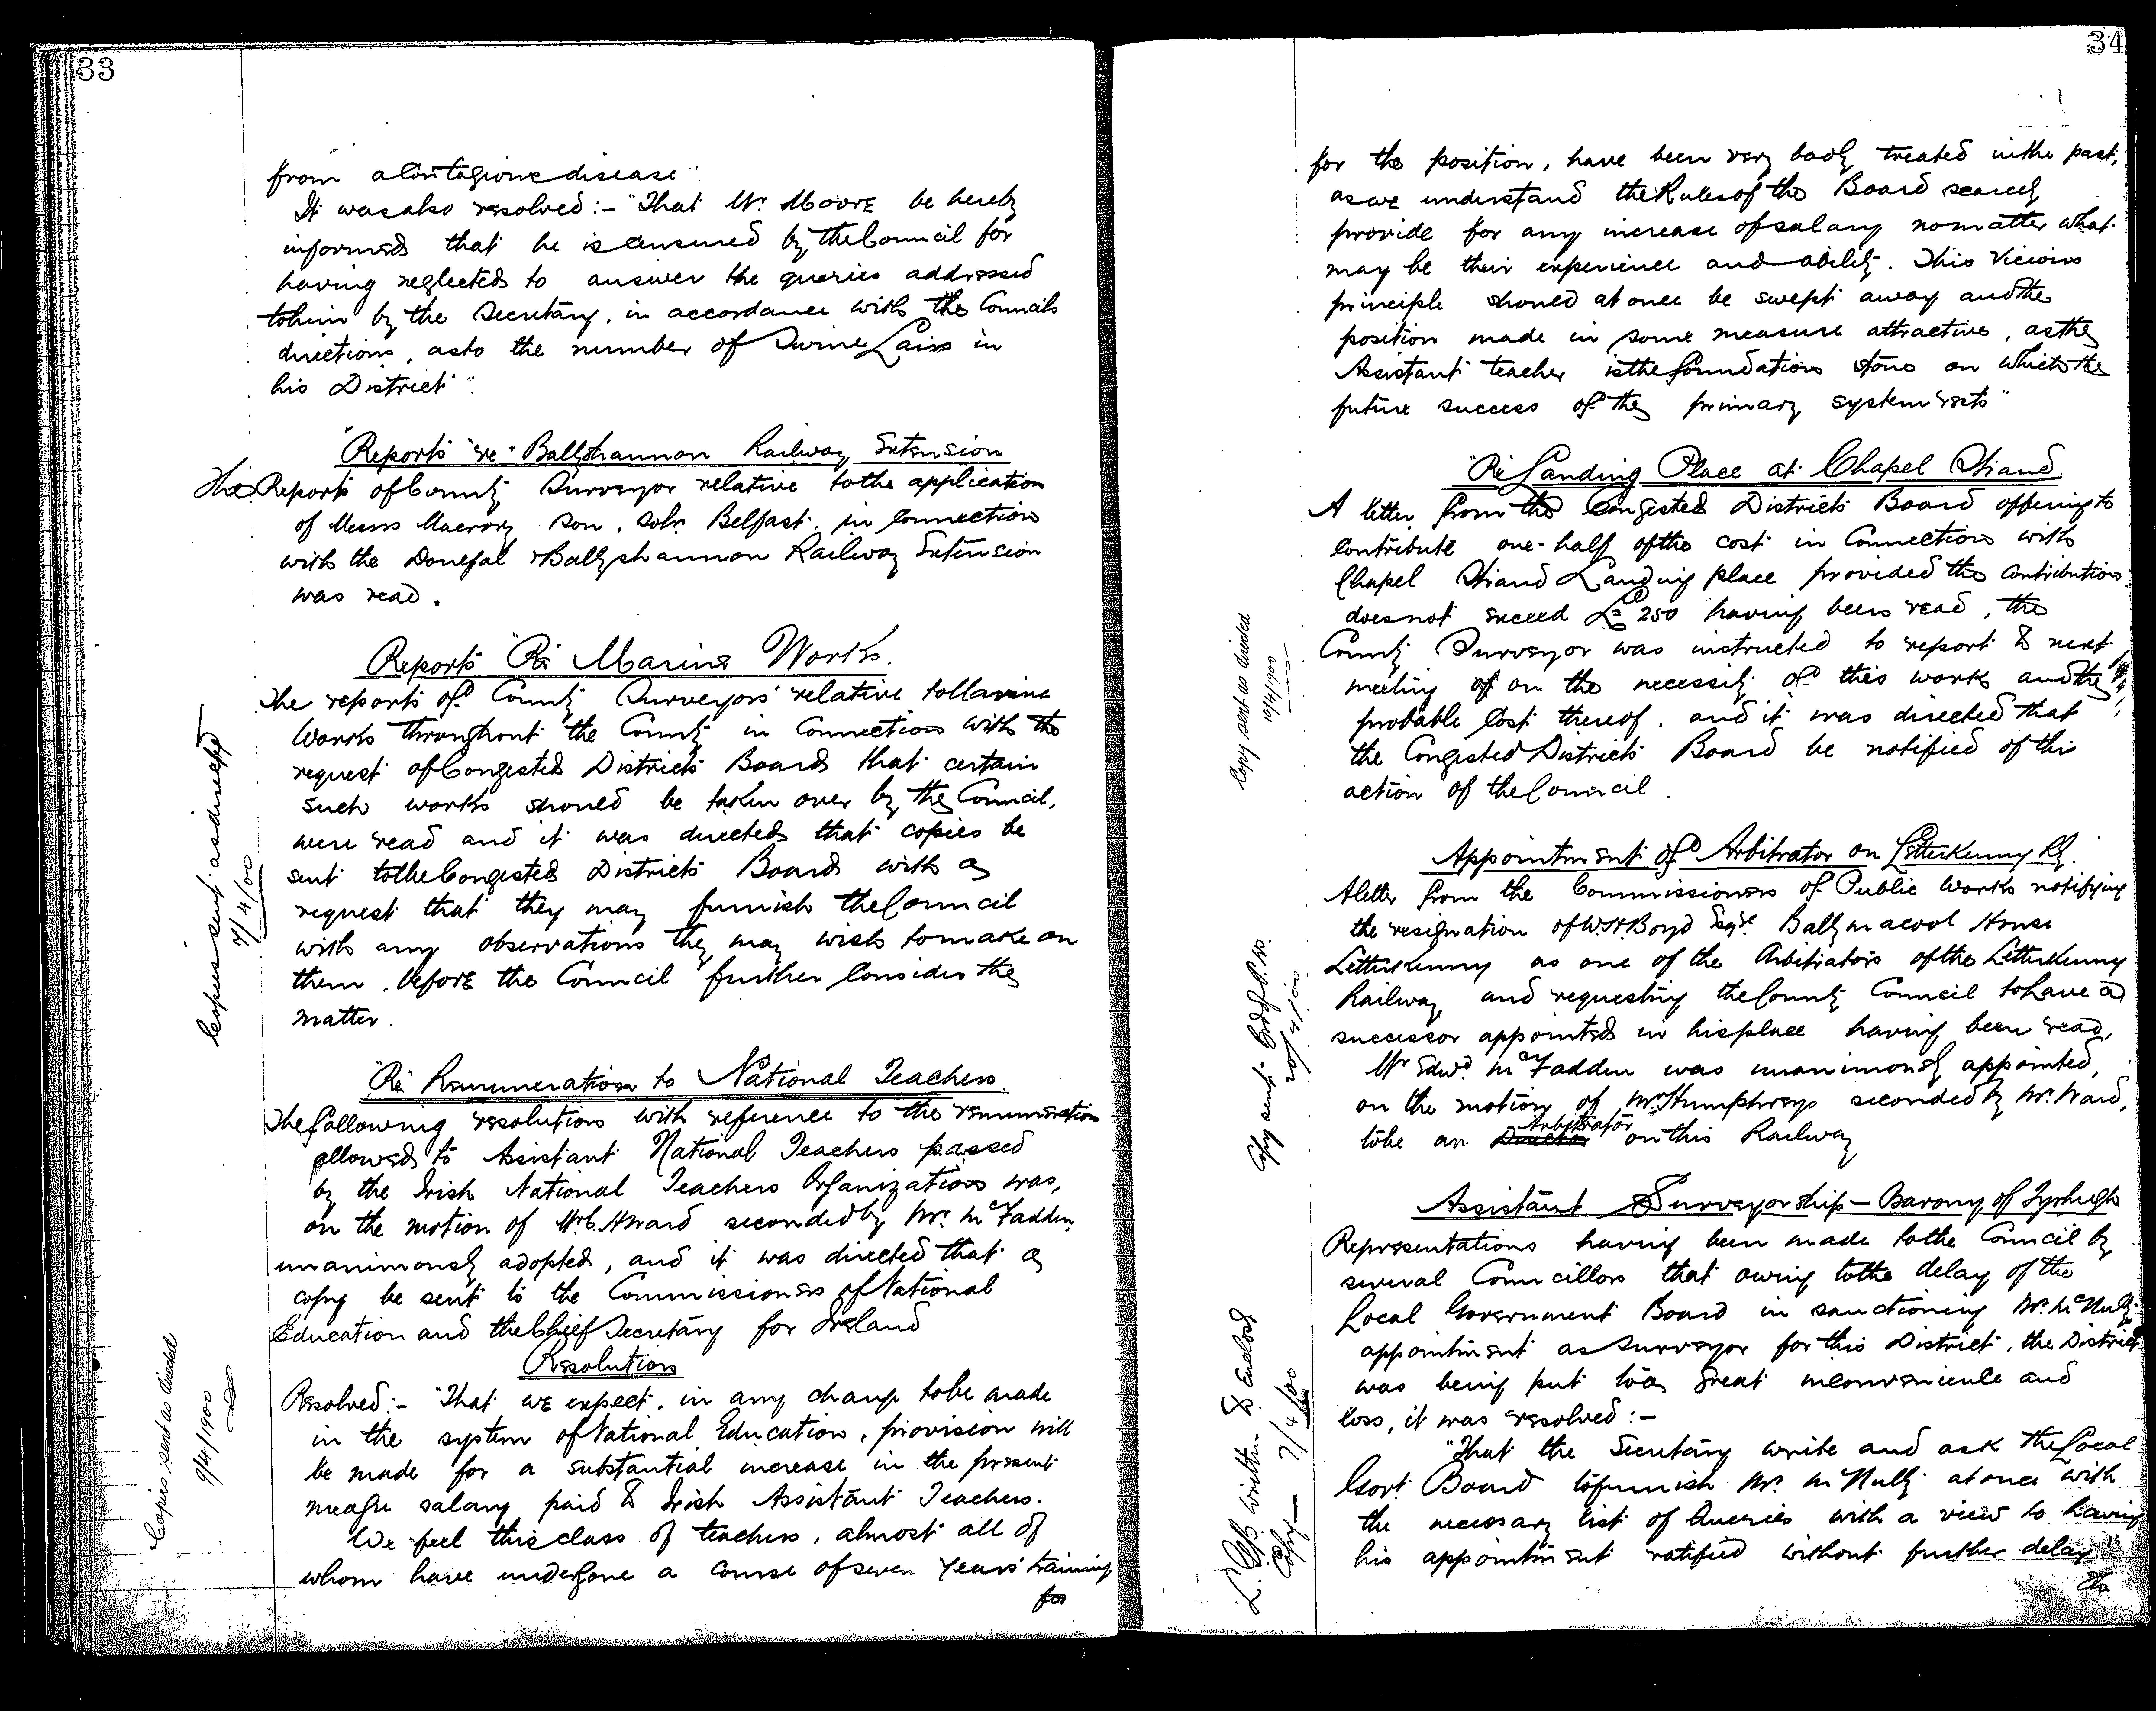 33
from a Contagious disease"
It was also resolved:- "That Mr. Moore be hereby
informed that he is censured by the Council for
having neglected to answer the queries addressed
to him by the Secretary, in accordance with the Councils
directions, as to the number of Swine Lairs in
his District"
Reports "re" Ballyshannon Railway Extension
The Reports of County Surveyor relative to the application
of Messrs Macrory Son, Solrs Belfast, in Connection
with the Donegal & Ballyshannon Railway Extension
was read.
Reports "Re" Marine Works.
The reports of County Surveyors relative to Marine
Works throughout the County in Connection with the
request of Congested Districts Board that certain
such works should be taken over by the Council,
were read and it was directed that copies be
sent to the Congested Districts Board with a
request that they may furnish the Council
with any observations they may wish to make on
them, before the Council further Consider the
matter.
Copies sent as directed
7/4/00
"Re" Remuneration to National Teachers.
The following resolution with reference to the remuneration
allowed to Assistant National Teachers passed
by the Irish National Teachers Organization was,
on the motion of Mr C. A Ward seconded by Mr. McFadden
unanimously adopted, and it was directed that a
copy be sent to the Commissioners of National
Education and the Chief Secretary for Ireland
Resolution
Resolved:- "That we expect, in any change to be made
in the system of National Education, provision will
be made for a substantial increase in the present
meagre salary paid to Irish Assistant Teachers.
We feel this class of teachers, almost all of
whom have undergone a course of seven years' training
for
Copies sent as directed
9/4/1900
34
for the position, have been very badly treated in the past,
as we understand the Rules of the Board scarcely
provide for any increase of salary no matter what
may be their experience and ability. This vicious
principle should at once be swept away and the
position made in some measure attractive, as the
Assistant teacher is the foundation stone on which the
future success of the primary system rests"
"Re" Landing Place at Chapel Strand
A letter from the Congested Districts Board offering to
Contribute one-half of the cost in Connection with
Chapel Strand Landing place provided the Contribution
does not exceed £250 having been read, the
County Surveyor was instructed to report to next
meeting of on the necessity of this work and the
probable Cost thereof, and it was directed that
the Congested Districts Board be notified of this
action of the Council.
Copy sent as directed
10/4/1900
Appointment of Arbitrator on Letterkenny Ry.
A letter from the Commissioners of Public Works notifying
the resignation of W. H. Boyd Esqr. Ballymacool House
Letterkenny as one of the Arbitrators of the Letterkenny
Railway, and requesting the County Council to have a
successor appointed in his place having been read,
Mr Edwd. McFadden was unanimously appointed,
on the motion of Mr. Humphreys seconded by Mr. Ward,
to be an Director Arbitrator on this Railway
Copy sent
Assistant Surveyorship - Barony of Tyrhugh
Representations having been made to the Council by
several Councillors that owing to the delay of the
Local Government Board in sanctioning Mr. McNulty's
appointment as Surveyor for this District, the District
was being put to a great inconvenience and
loss, it was resolved:-
"That the Secretary write and ask the Local
Govt. Board to furnish Mr. McNulty at once with
the necessary list of Queries with a view to having
his appointment ratified without further delay"
written & Enclosed
Copy - 7/4/00